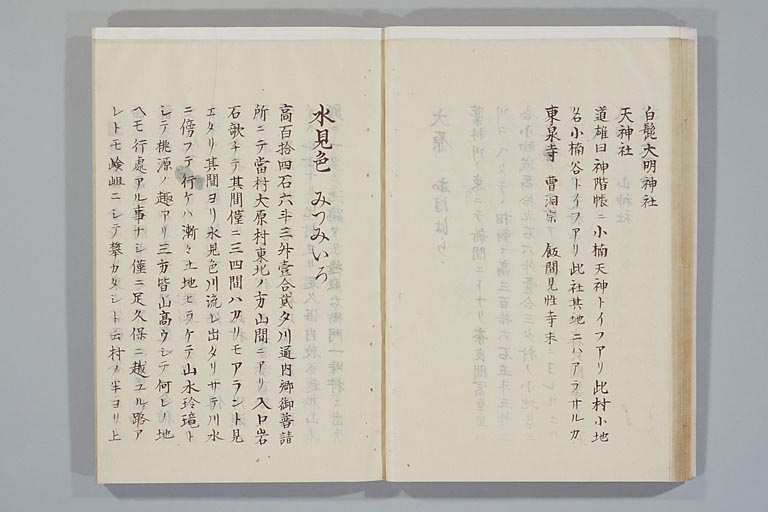 白髭大明神社
天神社
道雄曰神階帳ニ小楠天神トイフアリ此村小地
名小楠谷トイフアリ此社其地ニハアラサルカ
東泉寺 曹洞宗 飯間見性寺末
水見色 みつみいろ
高百拾四石六斗三升壹合貮夕川通内郷御普請
所ニテ當村大原村東北ノ方山間ニアリ入口岩
石歌チテ其間僅ニ三四間ハカリモアラント見
エタリ其間ヨリ水見色川流レ出タリサテ川水
ニ傍フテ行ケハ漸々土地ヒラケテ山水玲瓏ト
シテ桃源ノ趣アリ三方皆山高ウシテ何レノ地
ヘモ行處アル事ナシ僅ニ足久保ニ越ユル路ア
レトモ嶮岨ニシテ攀カタシト云村ノ半ヨリ上